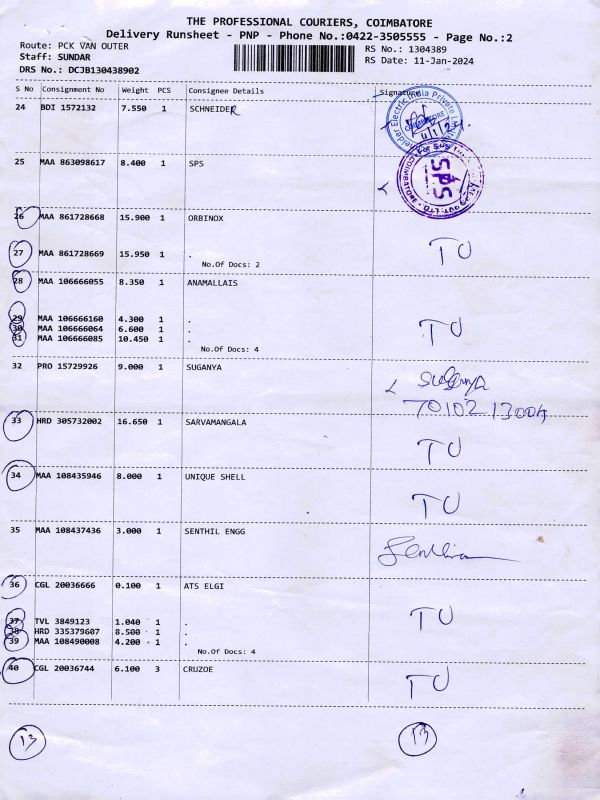 THE PROFESSIONAL COURIERS, COIMBATORE
Delivery Runsheet - PNP - Phone No.:0422-3505555 - Page No.:2
Route: PCK VAN OUTER
RS No.: 1304389
Staff: SUNDAR
RS Date: 11-Jan-2024
DRS No.: DCJB130438902
S No Consignment No Weight PCS Consignee Details Signature
24 BDI 1572132 7.550 1 SCHNEIDER
25 MAA 863098617 8.400 1 SPS
SPS
26 MAA 861728668 15.900 1 ORBINOX
27 MAA 861728669 15.950 1 .
TU
No.Of Docs: 2
28 MAA 106666055 8.350 1 ANAMALLAIS
29 MAA 106666160 4.300 1 .
30 MAA 106666064 6.600 1 .
TU
31 MAA 106666085 10.450 1 .
No.Of Docs: 4
32 PRO 15729926 9.000 1 SUGANYA
Suganya
70102 13004
33 HRD 305732002 16.650 1 SARVAMANGALA
TU
34 MAA 108435946 8.000 1 UNIQUE SHELL
TU
35 MAA 108437436 3.000 1 SENTHIL ENGG
36 CGL 20036666 0.100 1 ATS ELGI
TU
37 TVL 3849123 1.040 1 .
38 HRD 335379607 8.500 1 .
39 MAA 108490008 4.200 1 .
No.Of Docs: 4
40 CGL 20036744 6.100 3 CRUZOE
TU
13 13